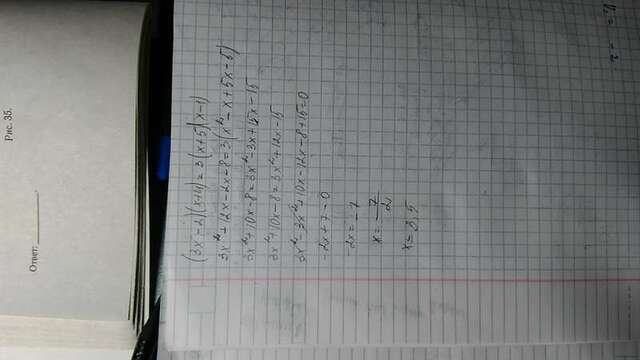 Рис. 35.
Ответ: ________.
(3x - 2)(x+4) = 3(x+5)(x-1)
3x² + 12x - 2x - 8 = 3(x² - x + 5x - 5)
3x² + 10x - 8 = 3x² - 3x + 15x - 15
3x² + 10x - 8 = 3x² + 12x - 15
3x² - 3x² + 10x - 12x - 8 + 15 = 0
-2x + 7 = 0
-2x = -7
x = 7/2
x = 3,5